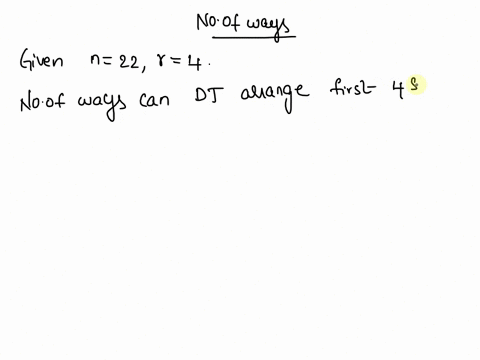 No. of ways
Given n=22, r=4.
No. of ways can DJ arrange first 4 s